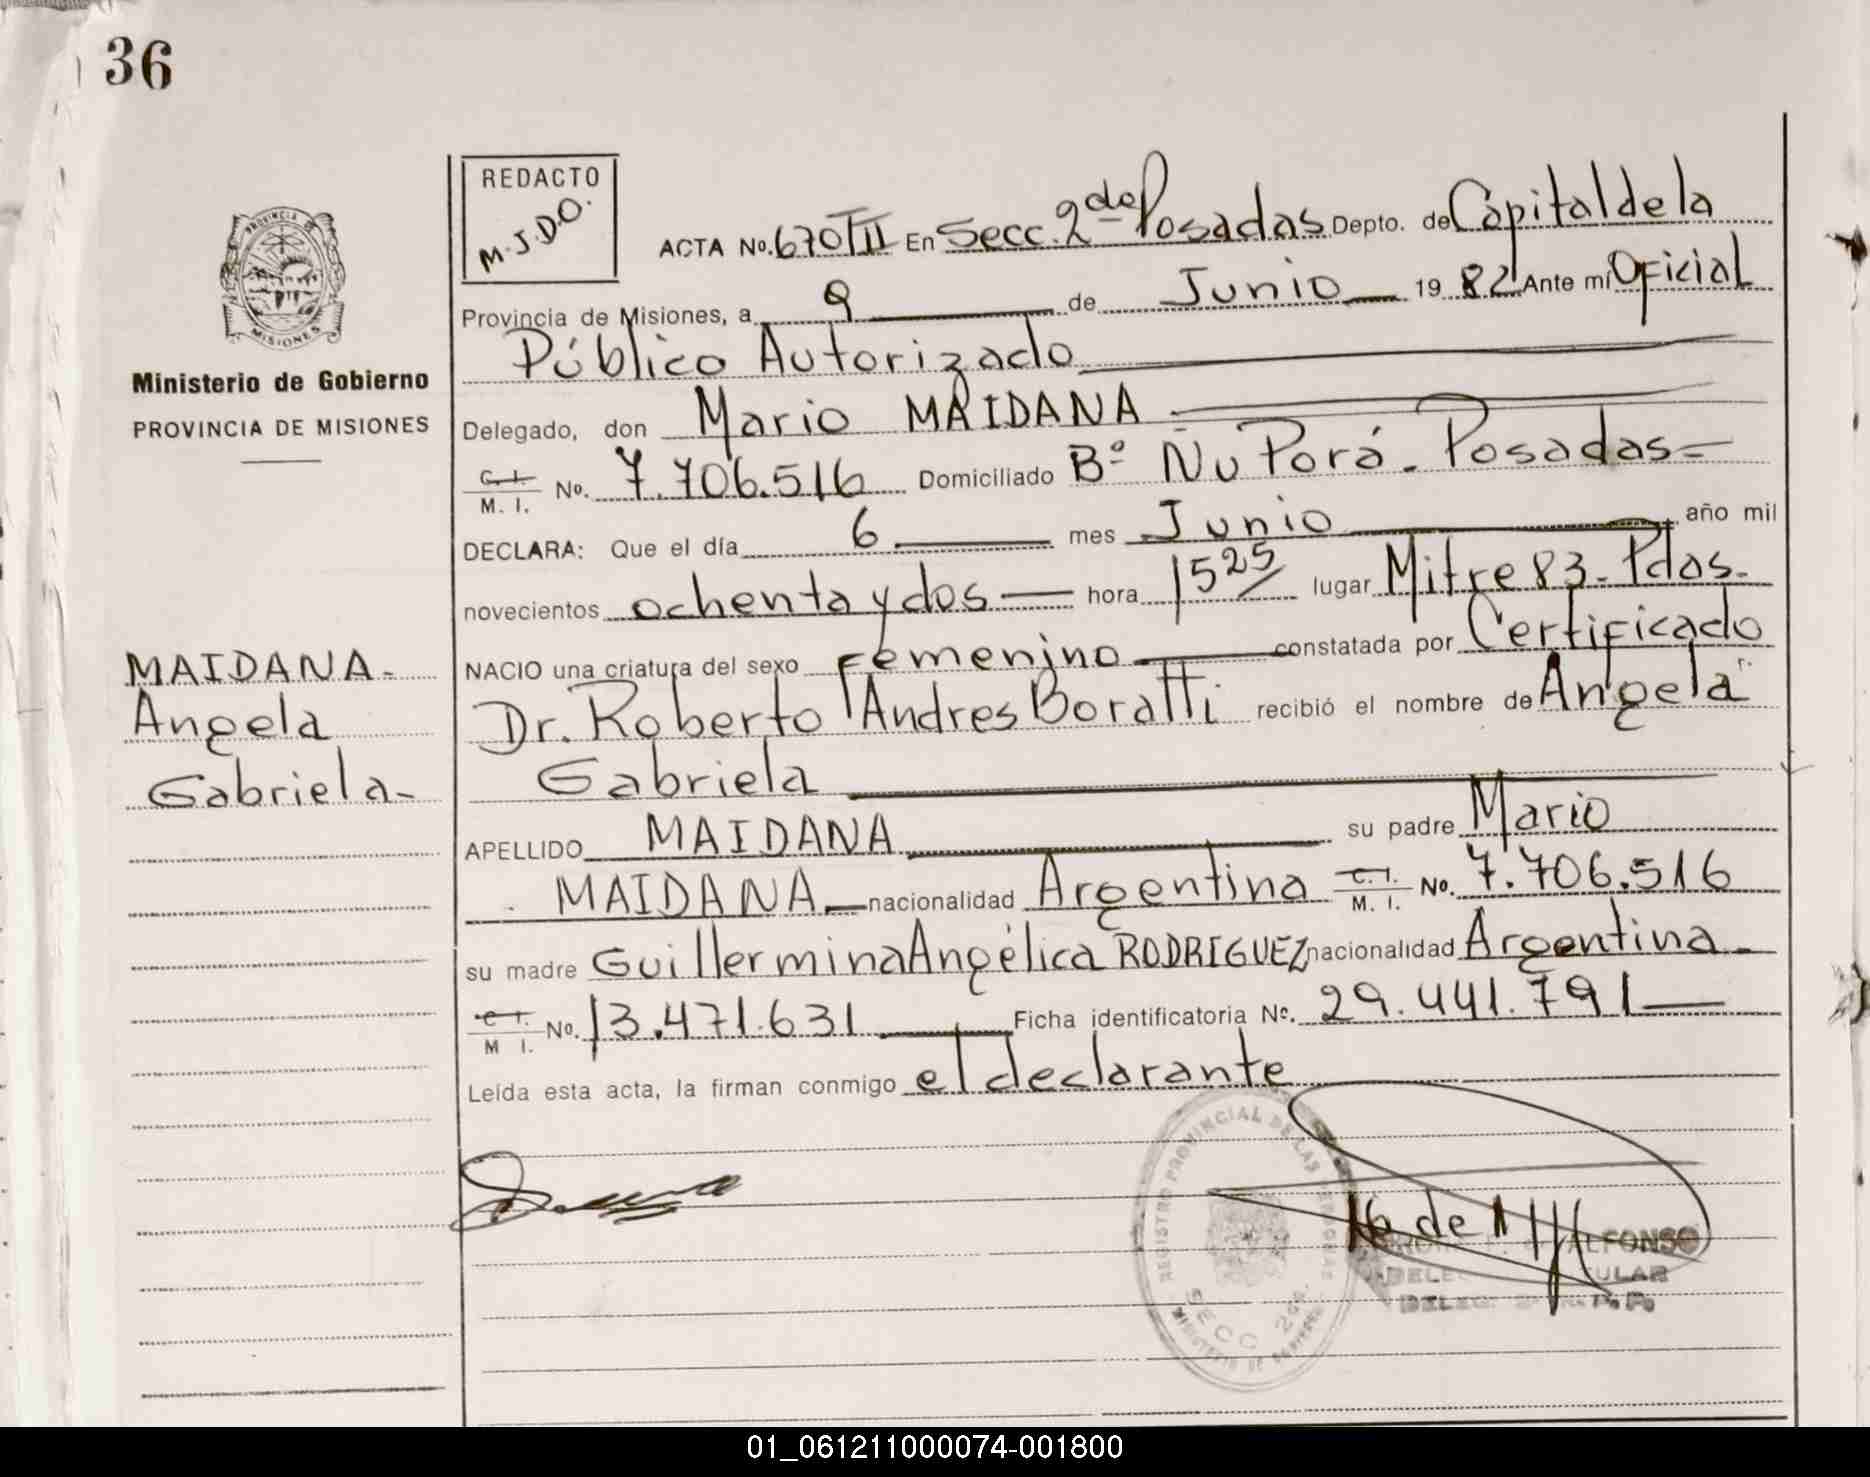 36
REDACTO
M.J.D.O.
ACTA No. 670 TII En Secc. 2da Posadas Depto. de Capital de la
Provincia de Misiones, a 9 de Junio 1982 Ante mí Oficial
Público Autorizado
PROVINCIA
MISIONES
Ministerio de Gobierno
PROVINCIA DE MISIONES
Delegado, don Mario MAIDANA
C. I.
M. I. No. 7.706.516 Domiciliado Bº Ñu Porá. Posadas
DECLARA: Que el día 6 mes Junio año mil
novecientos ochenta y dos hora 15 25 lugar Mitre 83. Pdas.
NACIO una criatura del sexo Femenino constatada por Certificado
MAIDANA
Angela
Gabriela
Dr. Roberto Andres Boratti recibió el nombre de Angela
Gabriela
APELLIDO MAIDANA su padre Mario
MAIDANA nacionalidad Argentina C. I.
M. I. No. 7.706.516
su madre Guillermina Angélica RODRIGUEZ nacionalidad Argentina
C. I.
M. I. No. 13.471.631 Ficha identificatoria No. 29.441.791
Leída esta acta, la firman conmigo el declarante
REGISTRO PROVINCIAL DE LAS PERSONAS
SECC 2da
MINISTERIO DE GOBIERNO
ALFONSO
01_061211000074-001800